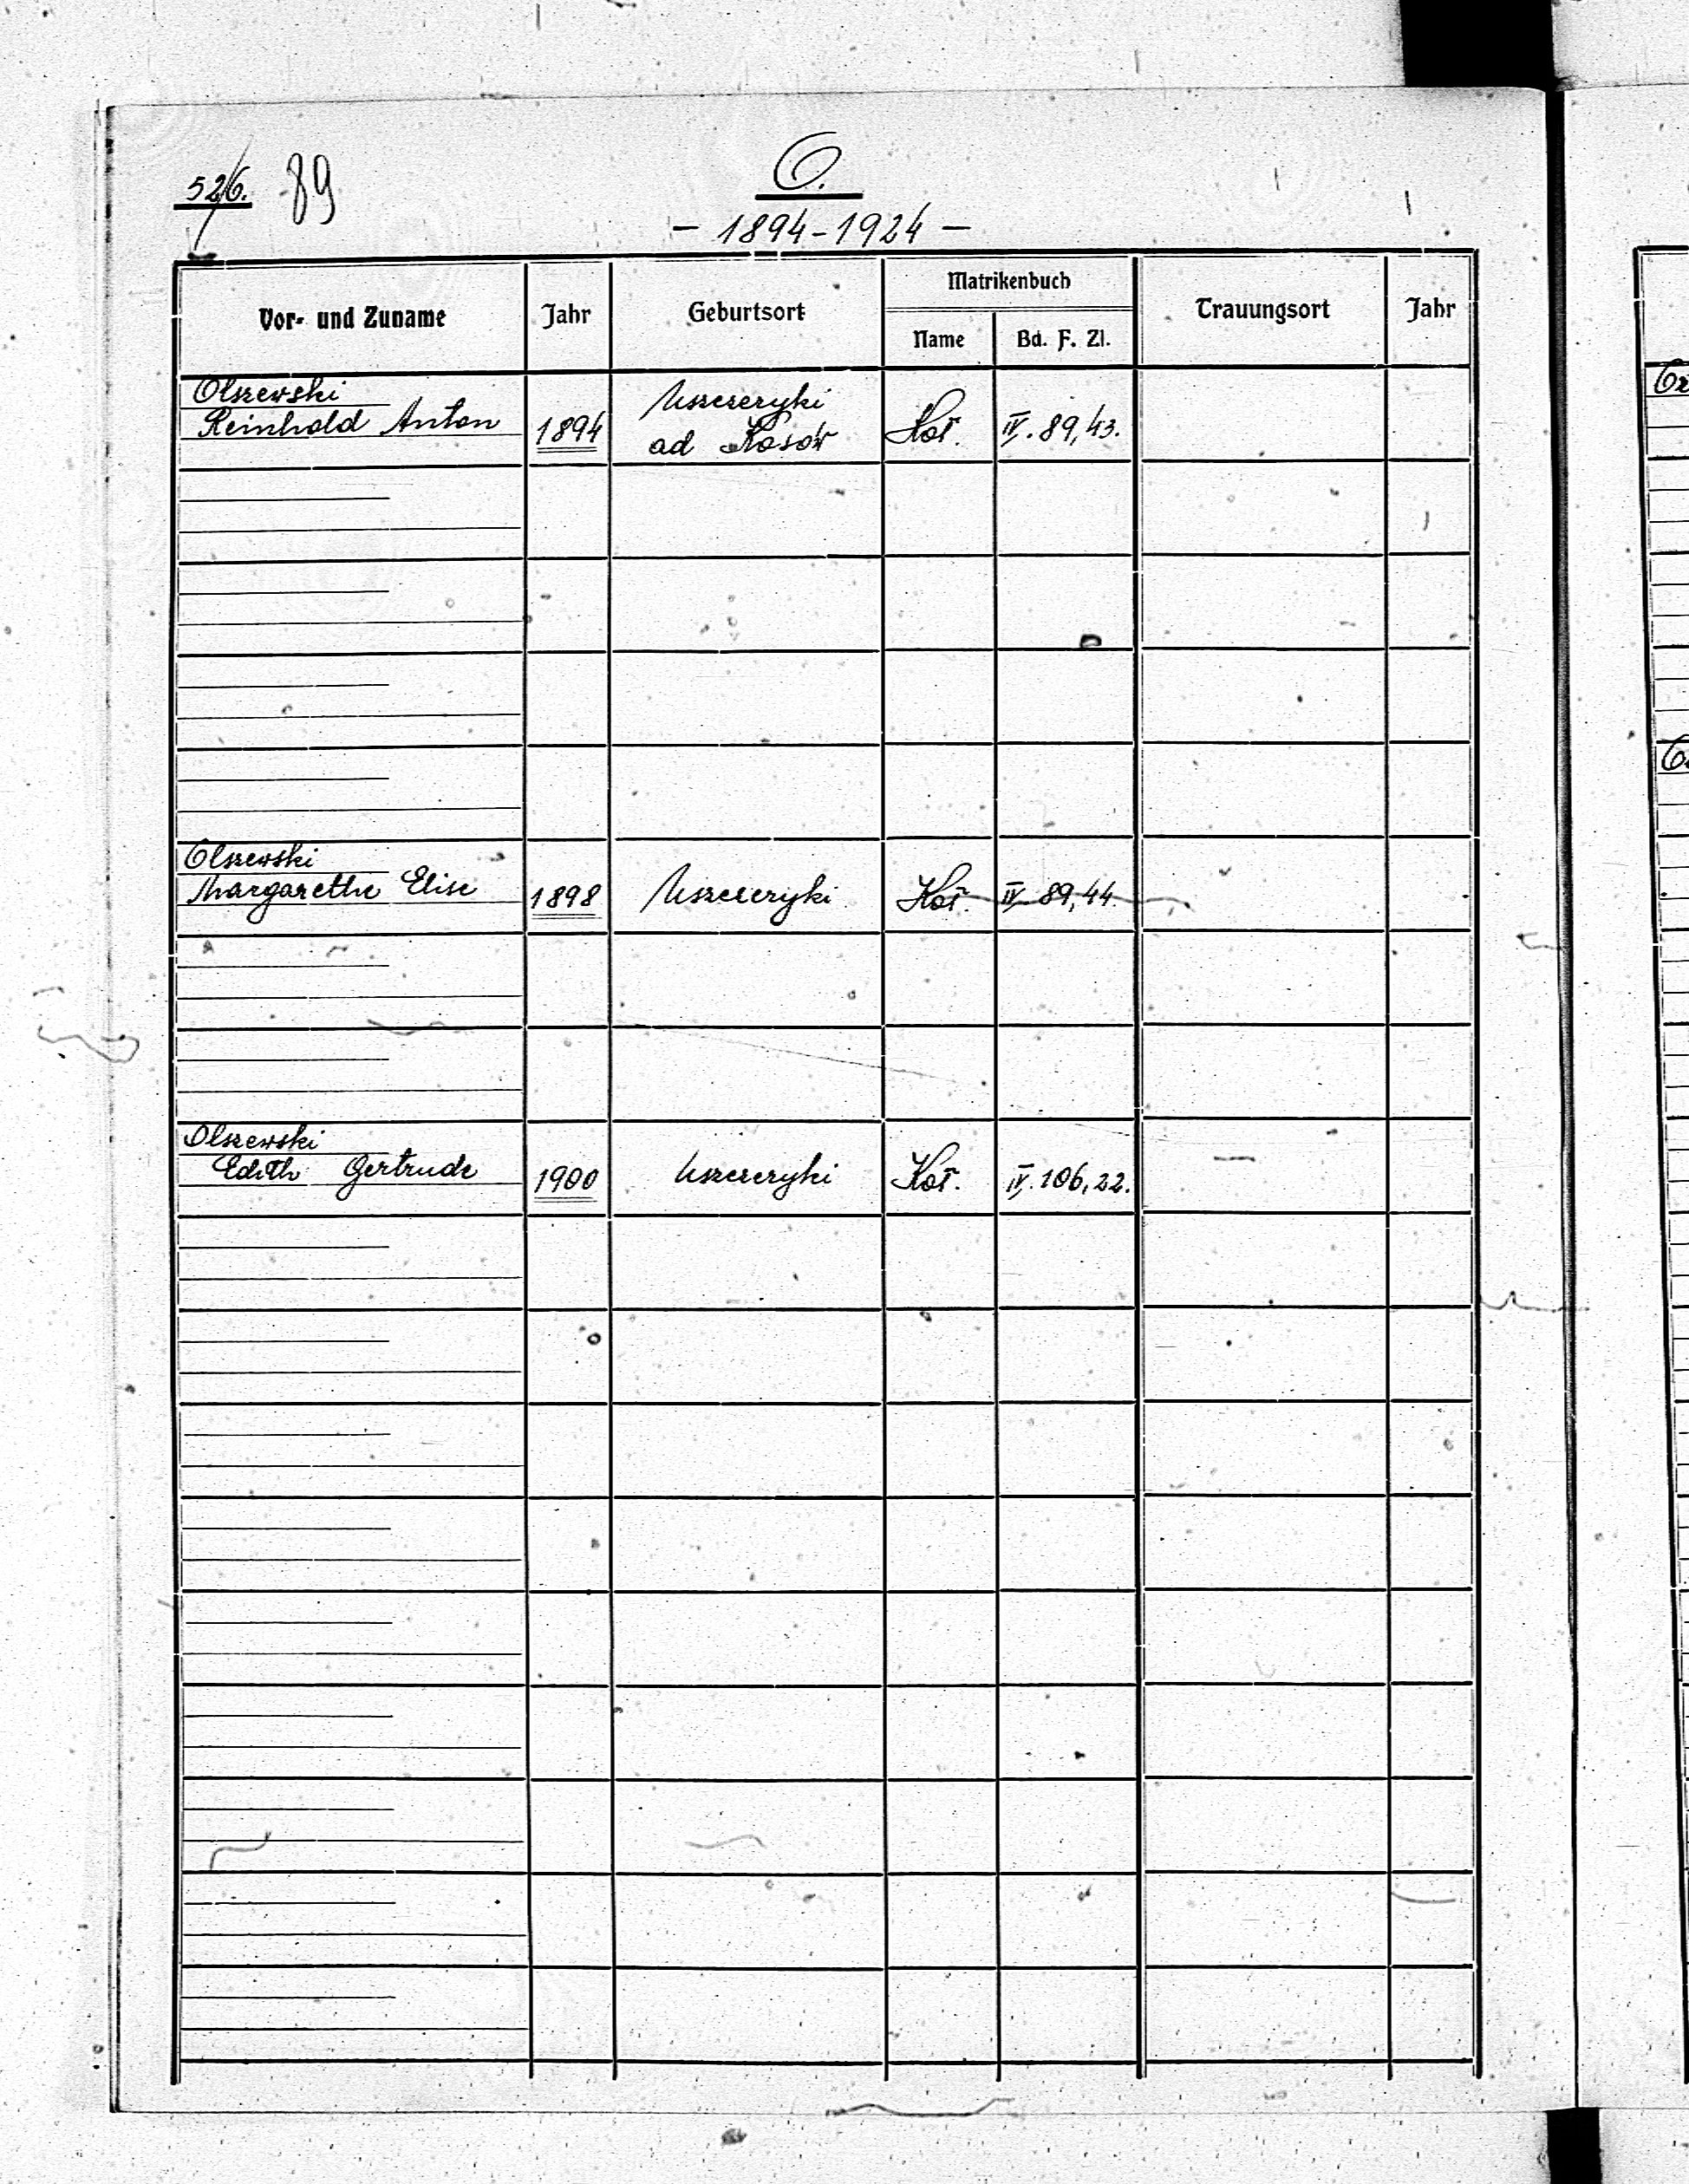 526. 89
O.
- 1894-1924 -
Vor- und Zuname Jahr Geburtsort Matrikenbuch Trauungsort Jahr
Name Bd. F. Zl.
Olszewski
Reinhold Anton 1894 Uszczeryki
ad Kosów Koł. IV. 89,43.
Olszewski
Margarethe Elise 1898 Uszczeryki Koł. IV. 89,44.
Olszewski
Edith Gertrude 1900 Uszczeryki Koł. IV. 106,22.